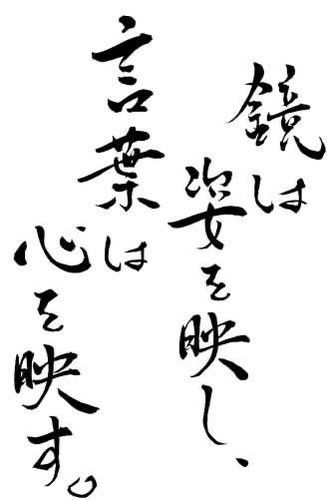 鏡は姿を映し、
言葉は心を映す。